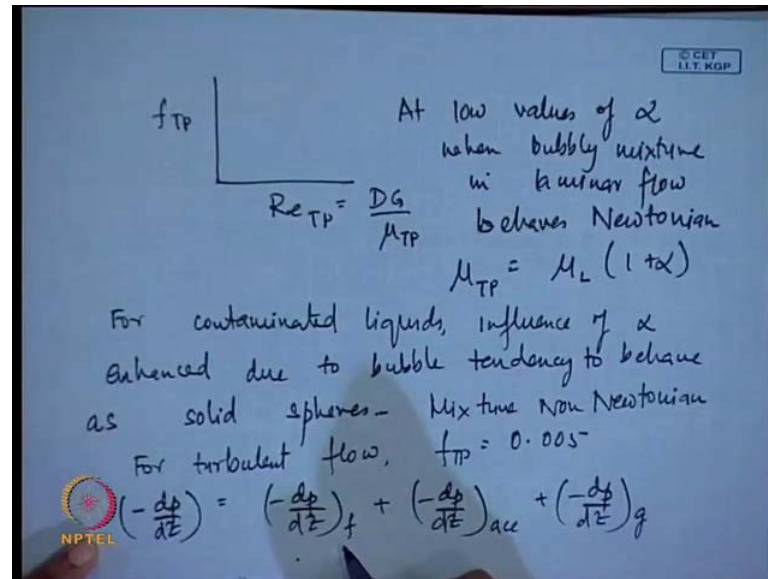 © CET
I.I.T. KGP
f_TP
At low values of α
when bubbly mixture
in laminar flow
Re_TP = DG/μ_TP behaves Newtonian
μ_TP = μ_L (1+α)
For contaminated liquids, influence of α
enhanced due to bubble tendency to behave
as solid spheres – Mixture Non Newtonian
For turbulent flow, f_TP = 0.005
(-dp/dz) = (-dp/dz)_f + (-dp/dz)_acc + (-dp/dz)_g
NPTEL